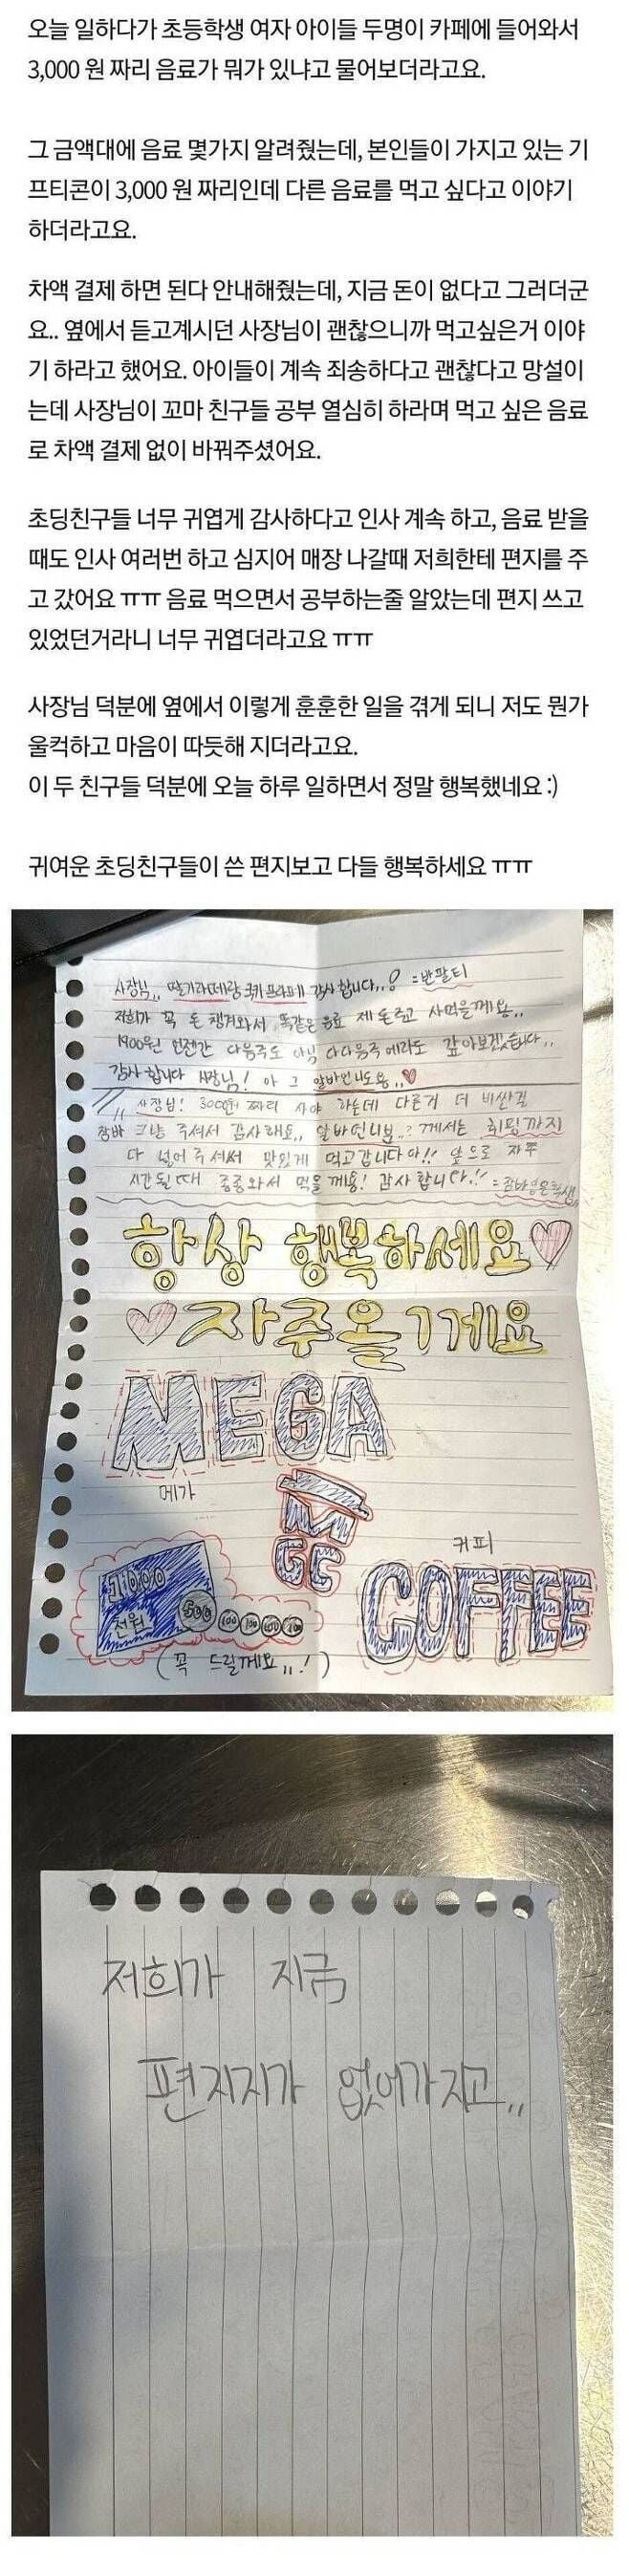 오늘 일하다가 초등학생 여자 아이들 두명이 카페에 들어와서
3,000 원 짜리 음료가 뭐가 있냐고 물어보더라고요.
그 금액대에 음료 몇가지 알려줬는데, 본인들이 가지고 있는 기
프티콘이 3,000 원 짜리인데 다른 음료를 먹고 싶다고 이야기
하더라고요.
차액 결제 하면 된다 안내해줬는데, 지금 돈이 없다고 그러더군
요.. 옆에서 듣고계시던 사장님이 괜찮으니까 먹고싶은거 이야
기 하라고 했어요. 아이들이 계속 죄송하다고 괜찮다고 망설이
는데 사장님이 꼬마 친구들 공부 열심히 하라며 먹고 싶은 음료
로 차액 결제 없이 바꿔주셨어요.
초딩친구들 너무 귀엽게 감사하다고 인사 계속 하고, 음료 받을
때도 인사 여러번 하고 심지어 매장 나갈때 저희한테 편지를 주
고 갔어요 ㅠㅠ 음료 먹으면서 공부하는줄 알았는데 편지 쓰고
있었던거라니 너무 귀엽더라고요 ㅠㅠ
사장님 덕분에 옆에서 이렇게 훈훈한 일을 겪게 되니 저도 뭔가
울컥하고 마음이 따듯해 지더라고요.
이 두 친구들 덕분에 오늘 하루 일하면서 정말 행복했네요 :)
귀여운 초딩친구들이 쓴 편지보고 다들 행복하세요 ㅠㅠ
사장님,, 딸기라떼랑 쿠키프라페 감사합니다..! =반팔티
저희가 꼭 돈 챙겨와서 똑같은 음료 제 돈주고 사먹을게요..
1900원 언젠간 다음주도 아님 다다음주에라도 갚아보겠습니다..
감사합니다 사장님! 아 그 알바언니도용..♥
사장님! 3000원 짜리 사야 하는데 다른거 더 비싼걸
그냥 주셔서 감사해요,, 알바언니분..? 께서는 휘핑까지
다 넣어주셔서 맛있게 먹고갑니다아!! 앞으로 자주
시간될때 종종와서 먹을께용! 감사합니다!!
항상 행복하세요♡
♡자주올게요
MEGA
메가
M
GC
커피
COFFEE
1000
천원
500
100 100 100 100
(꼭 드릴께요,,!)
저희가 지금
편지지가 없어가지고,,